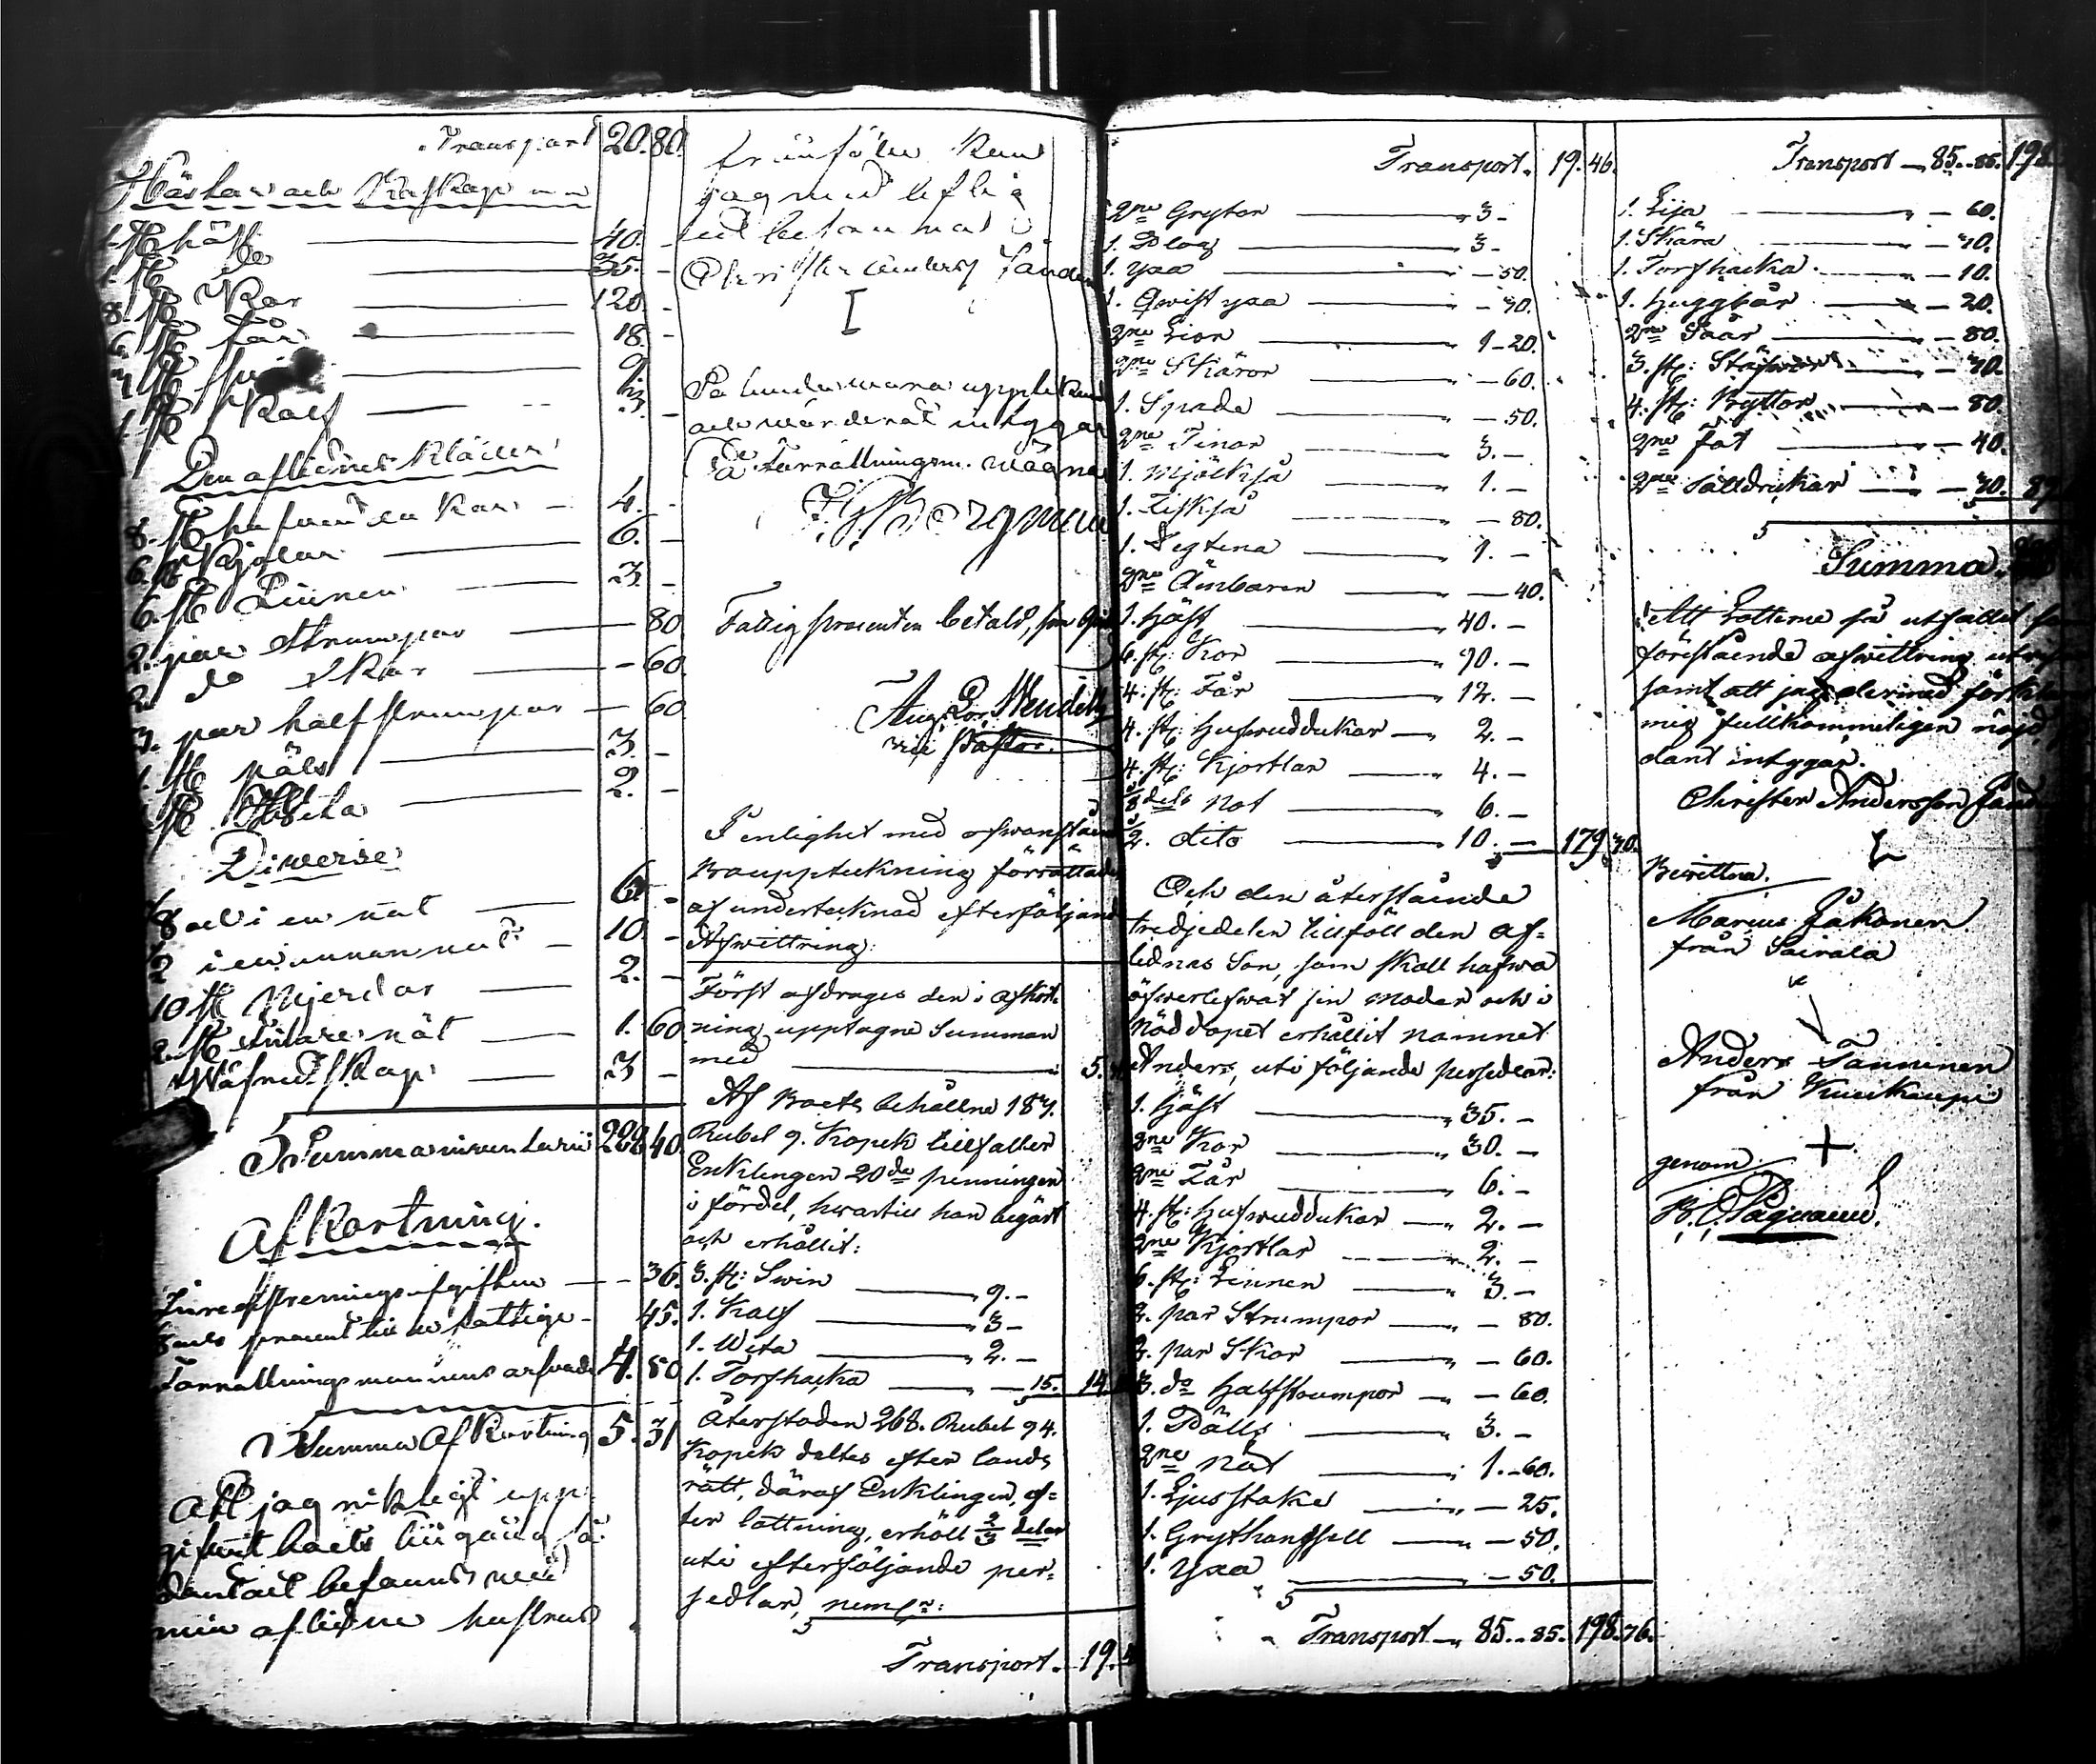 Transport 20. 80.
Hästar och Boskap
1. st häst 40. -
1. st do 35. -
8. st Kor 120. -
6. st får 18. -
3. st swin 9.
1. st Kalf 3. -
Den aflidnes Kläder
8. st hufvuddukar 4. -
6. st Kjolar 6. -
6. st Linnen 3. -
2. par strumpor 80
2. do Skor - 60
3. par halfstrumpor 60
1. st päls 3. -
1. st Wita 2. -
Diverse
del i en nat 6. -
1/2 i en annan nat 10. -
10 st Mjerdar 2. -
2. st nät 1. 60
Wäfredskap 3 -
Summa inventarii 288 40.
Afkortning.
- 36.
procent till de fattige 45.
Förrättningsmannens arfvode 4. 50
Summa Afkortning 5. 31
Att jag riktigt upp-
gifvit boets tillgång så-
dant det befanns vid
min aflidne hustrus
frånfälle kan
jag med liflig
ed betyga
Christer Anderss Jando
Så lunda vara upptecknadt
och värderat intygar
På Förrättningsm. wägnar
Fattigprocenten betald, som qvitt
Aug.
vice Pastor.
I enlighet med ofwanstående
Bouppteckning förrättades
af undertecknad efterföljande
Afwittring:
Först afdrages den i afkort-
ning upptagne Summan
med 5.
Af Boets behållne 283.
Rubel 9. Kopek tillfaller
Enklingen 20de penningen
i fördel, hwartill han begärt
och erhållit:
3. st: Swin 9. -
1. Kalf 3 -
1. Wita 2. -
1. Torfhacka - 15. 14
Återstoden 268. Rubel 94.
Kopek deltes efter lands
rätt, däraf Enklingen, ef-
ter lottning, erhöll 2/3 delar
uti efterföljande per-
sedlar, neml:
Transport. 19.
Transport. 19. 46.
2ne Grytor 3 -
1. Plog 3 -
1. Yxa - 50.
1. Qwist yxa - 70.
2ne Lior 1 - 20.
2ne Skäror - 60.
1. Spade - 50.
2ne Tinor 3. -
1. Mjölkså 1. -
1. Fiskså - 80.
1. Degtina 1. -
2ne Ämbaren - 40.
1. Häst 40. -
6. st: Kor 90. -
4. st: Får 12. -
4. st: Hufwuddukar 2. -
4. st: Kjortlar 4. -
dels Not 6. -
1/2. dito 10. - 179 70.
Och den återstående
tredjedelen tillföll den af-
lidnas Son, som skall hafwa
öfwerlefwat sin moder och i
nöddopet erhållit namnet
Anders, uti följande persedlar:
1. Häst 35. -
2ne Kor 30. -
2ne Får 6. -
4. st: Hufwuddukar 2. -
2ne Kjortlar 2. -
6. st: Linnen 3. -
2. par Strumpor - 80.
2. par Skor - 60.
3. do Halfstrumpor - 60.
1. Päls 3. -
2ne Nät 1. - 60.
1. Ljusstake - 25.
1. Grythandsell - 50.
1. Yxa - 50.
Transport 85. - 85. 198. 76.
Transport 85. - 85. 198.
1. Lija - 60.
1. Skära - 30.
1. Torfhacka - 10.
1. Huggbår - 20.
2ne Såar - 80.
3. st: Stäfwor - 30.
4. st: Byttor - 80.
2ne fat - 40.
2ne Sälldrikar - 30.
Summa.
Att Lotterne så utfallit
förestående afwittring
samt att jag dermed förklarar
mig fullkomneligen nöjd,
dant intygar.
Christer Andersson Jando
Bewittna.
Marius Jäkonen
från Sairala
Anders Tanninen
från
genom